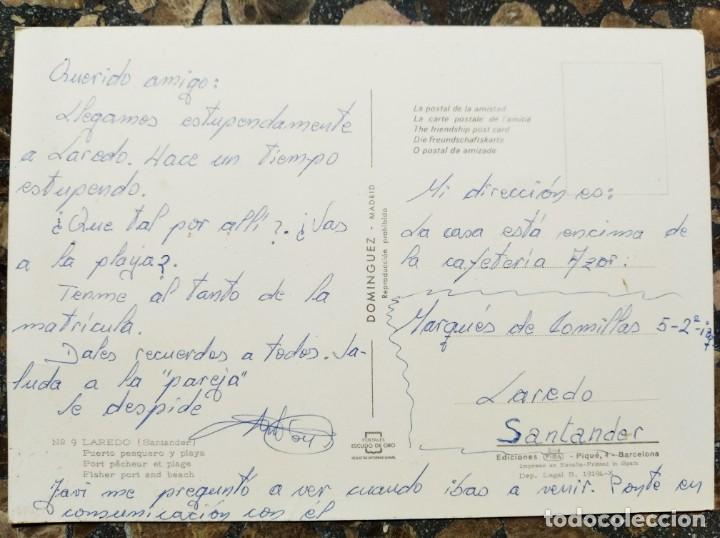 Querido amigo:
Llegamos estupendamente
a Laredo. Hace un tiempo
estupendo.
¿Que tal por allí?. ¿Vas
a la playa?.
Tenme al tanto de la
matrícula.
Dales recuerdos a todos. Sa-
luda a la "pareja"
Se despide
Nº 9 LAREDO (Santander)
Puerto pesquero y playa
Port pêcheur et plage
Fisher port and beach
Javi me preguntó a ver cuando ibas a venir. Ponte en
comunicación con él
DOMINGUEZ - MADRID
Reproducción prohibida
POSTALES
ESCUDO DE ORO
La postal de la amistad
La carte postale de l'amitié
The friendship post card
Die freundschaftskarte
O postal da amizade
Mi dirección es:
La casa está encima de
la cafetería Azor:
Marqués de Comillas 5-2º
Laredo
Santander
Ediciones FISA - Piqué, 4 - Barcelona
Impreso en España-Printed in Spain
Dep. Legal B. 19194-X
todocoleccion